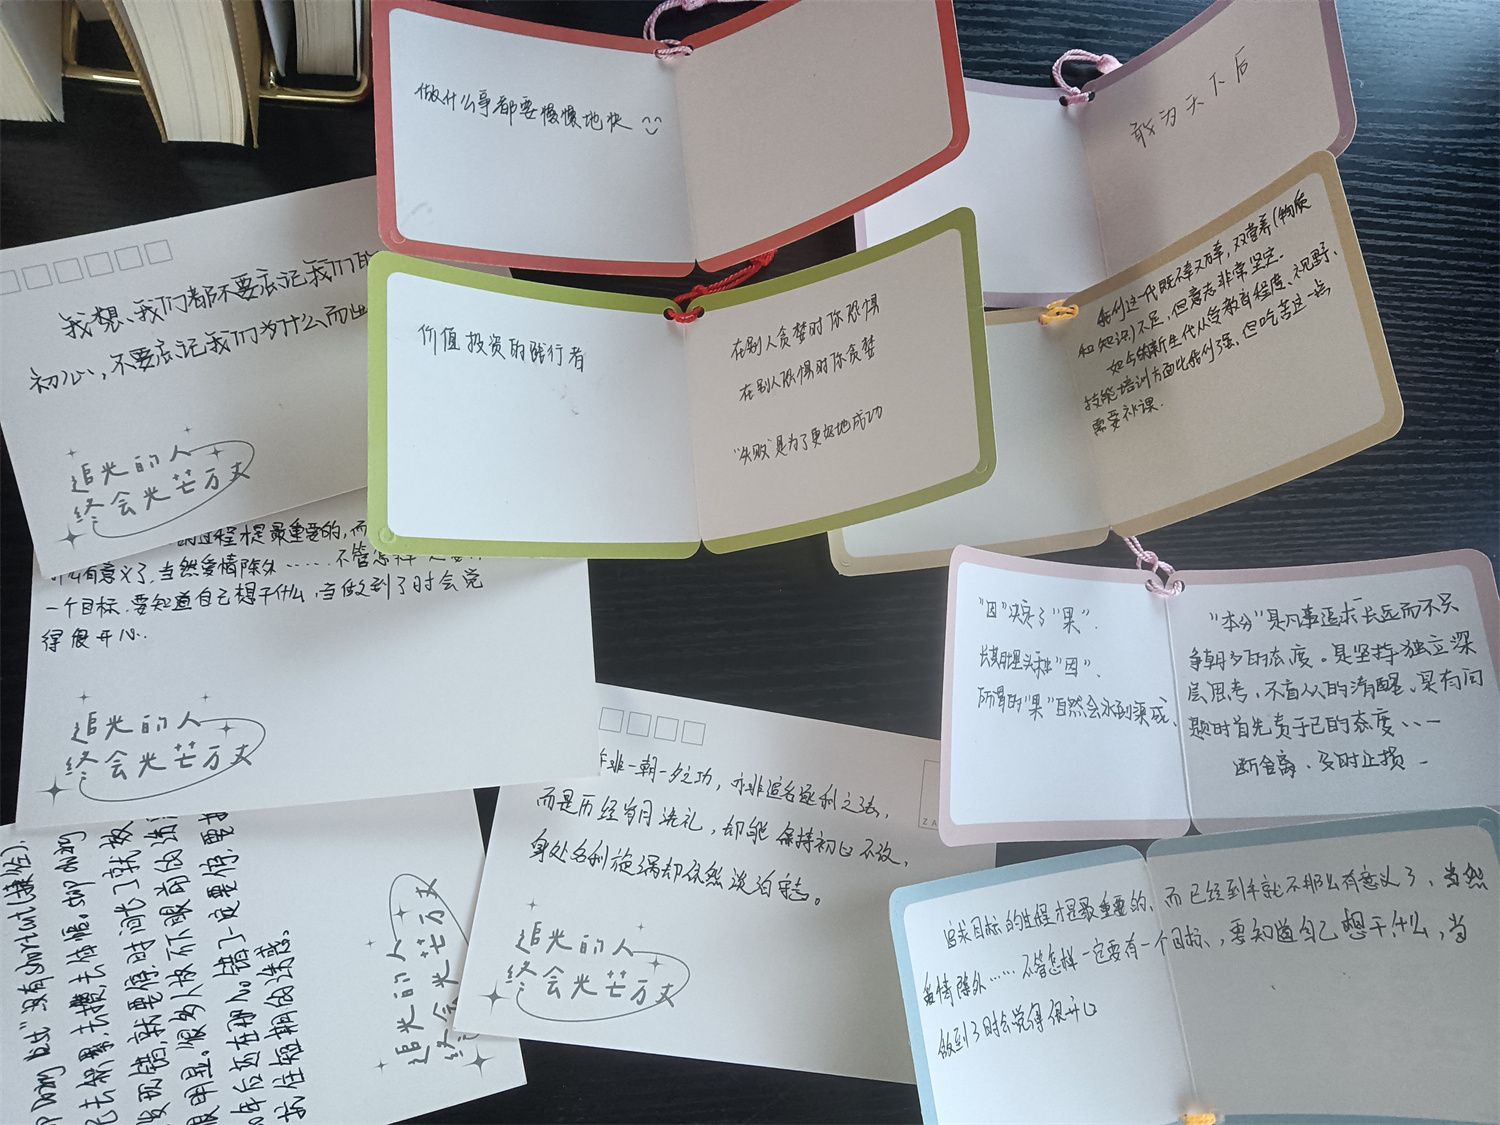 做什么事都要慢慢地快
敢为天下后
我想、我们都不要忘记我们的
初心,不要忘记我们为什么而出
追光的人
终会光芒万丈
价值投资的践行者
在别人贪婪时你恐惧
在别人恐惧时你贪婪
“失败”是为了更好地成功
我们这一代既不幸又万幸,双营养(物质
和知识)不足,但意志非常坚定.
如今的新生代从受教育程度、视野、
技能培训方面比我们强、但吃苦这一点
需要补课.
过程才是最重要的,而
有意义了,当然爱情除外……不管怎样一定要
一个目标.要知道自己想干什么,当做到了时会觉
得很开心.
追光的人
终会光芒万丈
“因”决定了“果”.
长期埋头种“因”、
所谓的“果”自然会水到渠成、
“本分”是凡事追求长远而不只
争朝夕的态度。是坚持独立深
层思考,不盲从的清醒、是有问
题时首先责于己的态度、、一
断舍离、及时止损
非一朝一夕之功,亦非追名逐利之法,
而是历经岁月洗礼,却能保持初心不改,
身处名利旋涡却依然淡泊守志。
追光的人
终会光芒万丈
追求目标的过程才是最重要的、而已经到手就不那么有意义了、当然
爱情除外……不管怎样一定要有一个目标、,要知道自己想干什么,当
做到了时会觉得很开心
doing best”没有shortcut(捷径).
去积累,去攒,去体悟. stop doing
发现错,就要停,时间长了就
很明显。很多人放不下眼前的诱
年后还在那儿。错了一定要停,要
抗住短期的诱惑。
追光的人
终会光芒万丈